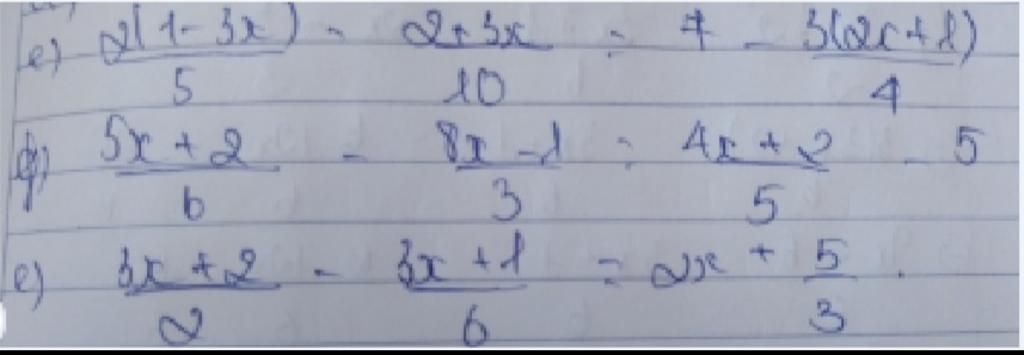 e) 2(1-3x)/5 - 2+3x/10 = 7 - 3(2x+1)/4
f) 5x+2/6 - 8x-1/3 = 4x+2/5 - 5
e) 3x+2/2 - 3x+1/6 = 2x + 5/3.